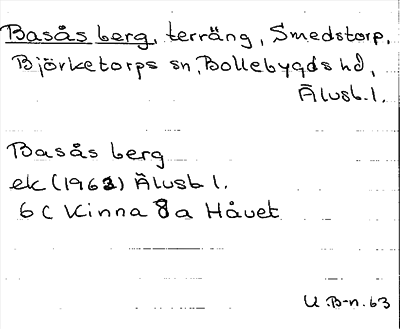 Basås berg, terräng, Smedstorp,
Björketorps sn, Bollebygds hd,
Älvsb. l.
Basås berg
ek (1962) Älvsb l.
6 C Kinna 8a Håvet
U B-n. 63